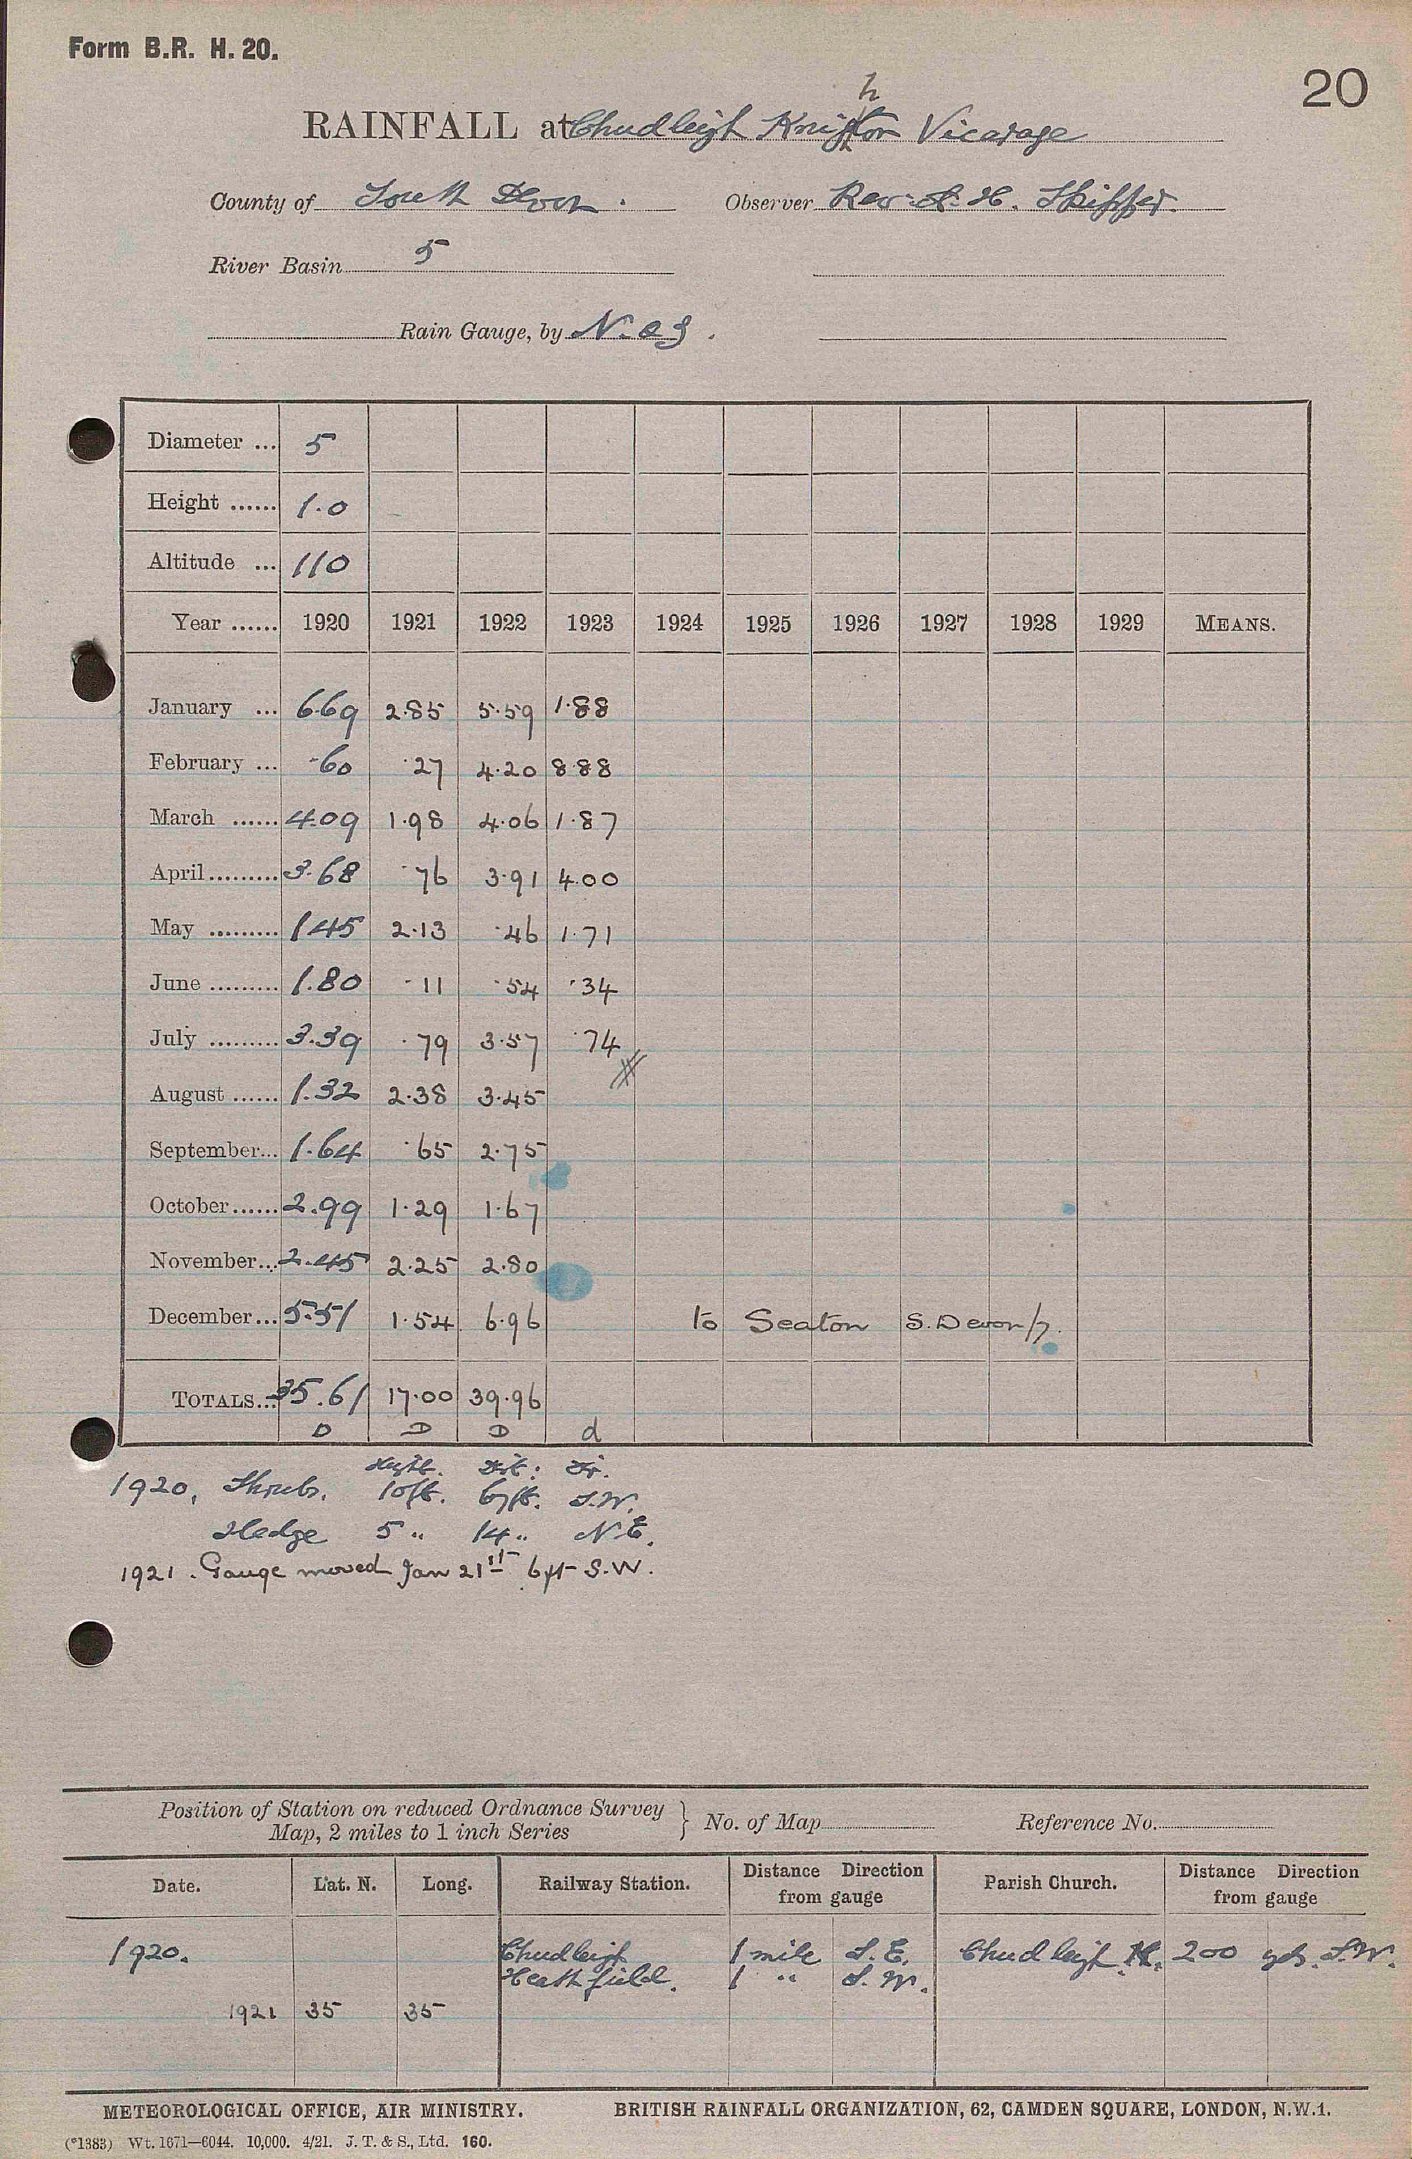 Form B.R. H. 20.
20
RAINFALL at Chudleigh Knighton Vicarage
County of South Devon. Observer Rev. A. H. Skipper.
River Basin 5
Rain Gauge, by N. & Z.
Diameter ... 5
Height ...... 1.0
Altitude ... 110
Year ...... 1920 1921 1922 1923 1924 1925 1926 1927 1928 1929 MEANS.
January ... 6.69 2.85 5.59 1.88
February ... .60 .27 4.20 8.88
March ...... 4.09 1.98 4.06 1.87
April ......... 3.68 .76 3.91 4.00
May ......... 1.45 2.13 .46 1.71
June ......... 1.80 .11 .54 .34
July ......... 3.39 .79 3.57 .74
August ...... 1.32 2.38 3.45
September... 1.64 .65 2.75
October ...... 2.99 1.29 1.67
November... 2.45 2.25 2.80
December... 5.51 1.54 6.96 to Seaton S. Devon/7.
TOTALS... 35.61 17.00 39.96
D D D d
Height. Dist: Dir.
1920. Shrubs. 10ft. 6ft. S.W.
Hedge 5 " 14 " N.E.
1921. Gauge moved Jan 21st 6ft S.W.
Position of Station on reduced Ordnance Survey Map, 2 miles to 1 inch Series } No. of Map Reference No.
Date. Lat. N. Long. Railway Station. Distance Direction from gauge Parish Church. Distance Direction from gauge
1920. Chudleigh 1 mile S.E. Chudleigh K. 200 yds. S.W.
Heathfield. 1 " S.W.
1921 35 35
METEOROLOGICAL OFFICE, AIR MINISTRY. BRITISH RAINFALL ORGANIZATION, 62, CAMDEN SQUARE, LONDON, N.W.1.
(*1383) Wt. 1671—6044. 10,000. 4/21. J. T. & S., Ltd. 160.